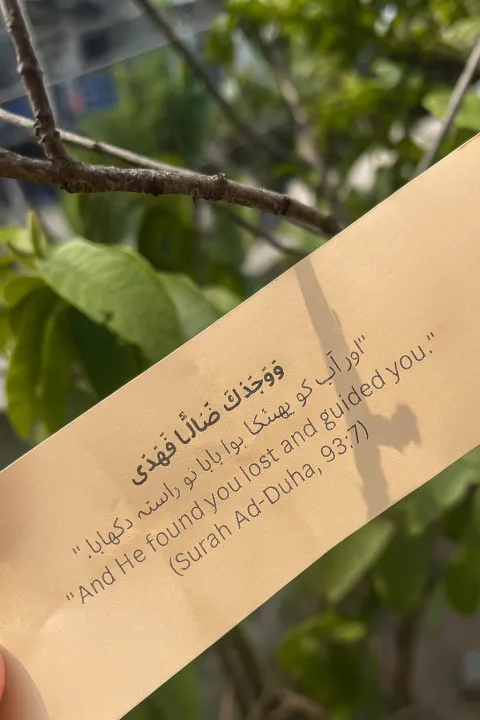 وَوَجَدَكَ ضَالًّا فَهَدَى
"اور آپ کو بھٹکا ہوا پایا تو راستہ دکھایا۔"
"And He found you lost and guided you."
(Surah Ad-Duha, 93:7)